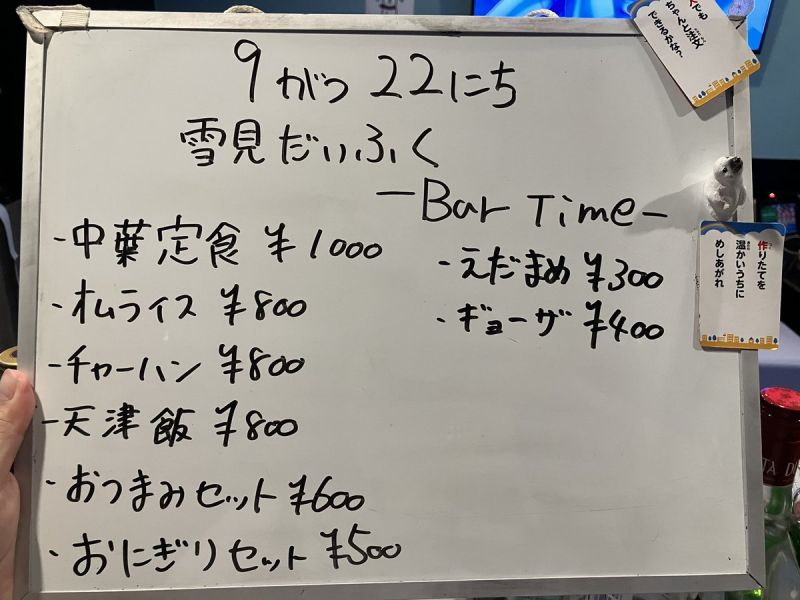 9がつ 22にち
雪見だいふく
－Bar Time－
・中葉定食 ¥1000
・オムライス ¥800
・チャーハン ¥800
－天津飯 ¥800
・おつまみセット ¥600
・おにぎりセット ¥500
・えだまめ ¥300
・ギョーザ ¥400
でも
ちゃんと注文
できるかな？
作りたてを
温かいうちに
めしあがれ